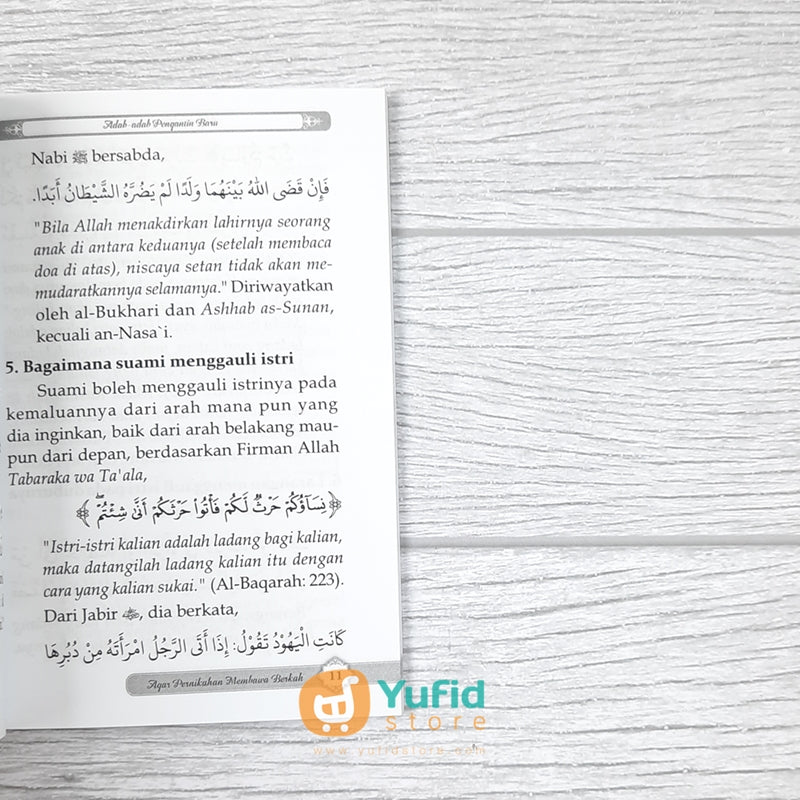 Adab-adab Pengantin Baru
Nabi ﷺ bersabda,
فَإِنْ قَضَى اللهُ بَيْنَهُمَا وَلَدًا لَمْ يَضُرَّهُ الشَّيْطَانُ أَبَدًا.
"Bila Allah menakdirkan lahirnya seorang
anak di antara keduanya (setelah membaca
doa di atas), niscaya setan tidak akan me-
mudaratkannya selamanya." Diriwayatkan
oleh al-Bukhari dan Ashhab as-Sunan,
kecuali an-Nasa`i.
5. Bagaimana suami menggauli istri
Suami boleh menggauli istrinya pada
kemaluannya dari arah mana pun yang
dia inginkan, baik dari arah belakang mau-
pun dari depan, berdasarkan Firman Allah
Tabaraka wa Ta'ala,
﴿نِسَاؤُكُمْ حَرْثٌ لَّكُمْ فَأْتُوا۟ حَرْثَكُمْ أَنَّىٰ شِئْتُمْ ۖ﴾
"Istri-istri kalian adalah ladang bagi kalian,
maka datangilah ladang kalian itu dengan
cara yang kalian sukai." (Al-Baqarah: 223).
Dari Jabir, dia berkata,
كَانَتِ الْيَهُوْدُ تَقُوْلُ: إِذَا أَتَى الرَّجُلُ امْرَأَتَهُ مِنْ دُبُرِهَا
Agar Pernikahan Membawa Berkah 11
Yufid
store
www.yufidstore.com